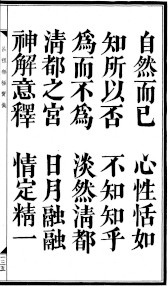 自然而已　心性恬如
知所以否　不知知乎
為而不為　淡然清都
清都之宮　日月融融
神解意釋　情定精一